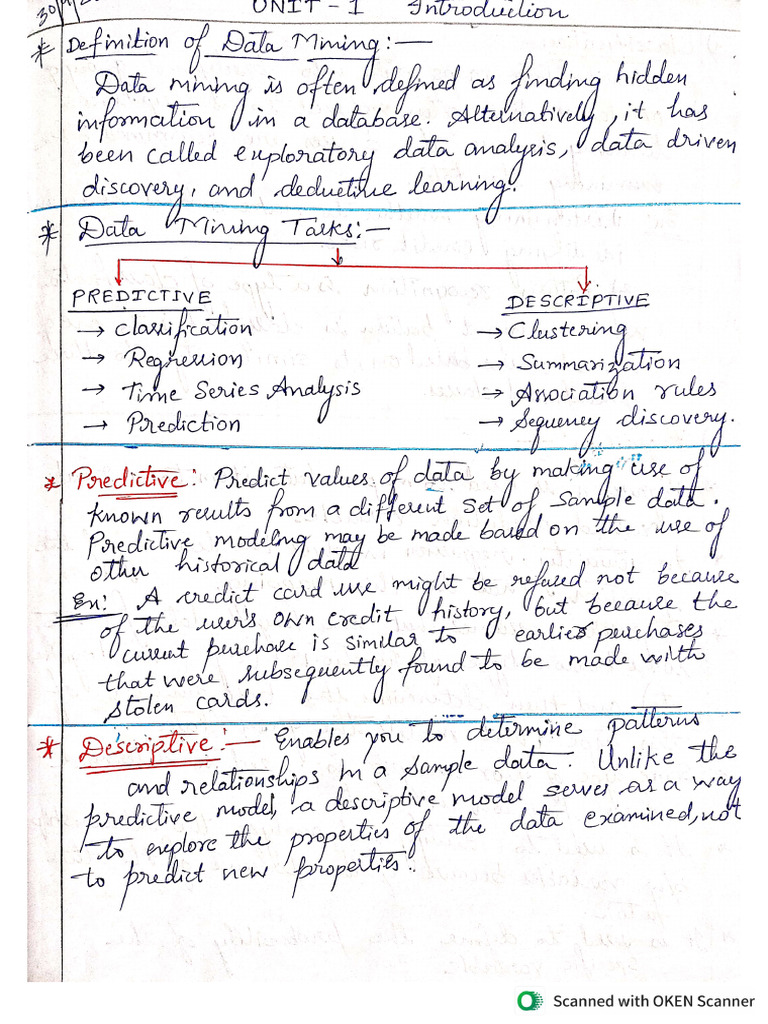 UNIT - 1 Introduction
* Definition of Data Mining:-
Data mining is often defined as finding hidden
information in a database. Alternatively, it has
been called exploratory data analysis, data driven
discovery, and deductive learning.
* Data Mining Tasks:-
PREDICTIVE DESCRIPTIVE
→ Classification → Clustering
→ Regression → Summarization
→ Time Series Analysis → Association rules
→ Prediction → Sequency discovery.
* Predictive: Predict values of data by making use of
known results from a different set of sample data.
Predictive modeling may be made based on the use of
other historical data
Ex: A credict card use might be refused not because
of the user's own credit history, but because the
current purchase is similar to earlier purchases
that were subsequently found to be made with
stolen cards.
* Descriptive:- Enables you to determine patterns
and relationships in a sample data. Unlike the
predictive model, a descriptive model serves as a way
to explore the properties of the data examined, not
to predict new properties.
Scanned with OKEN Scanner